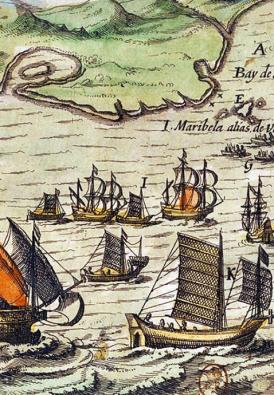 A
Bay de
E
I. Maribela alias de V
I
G
K